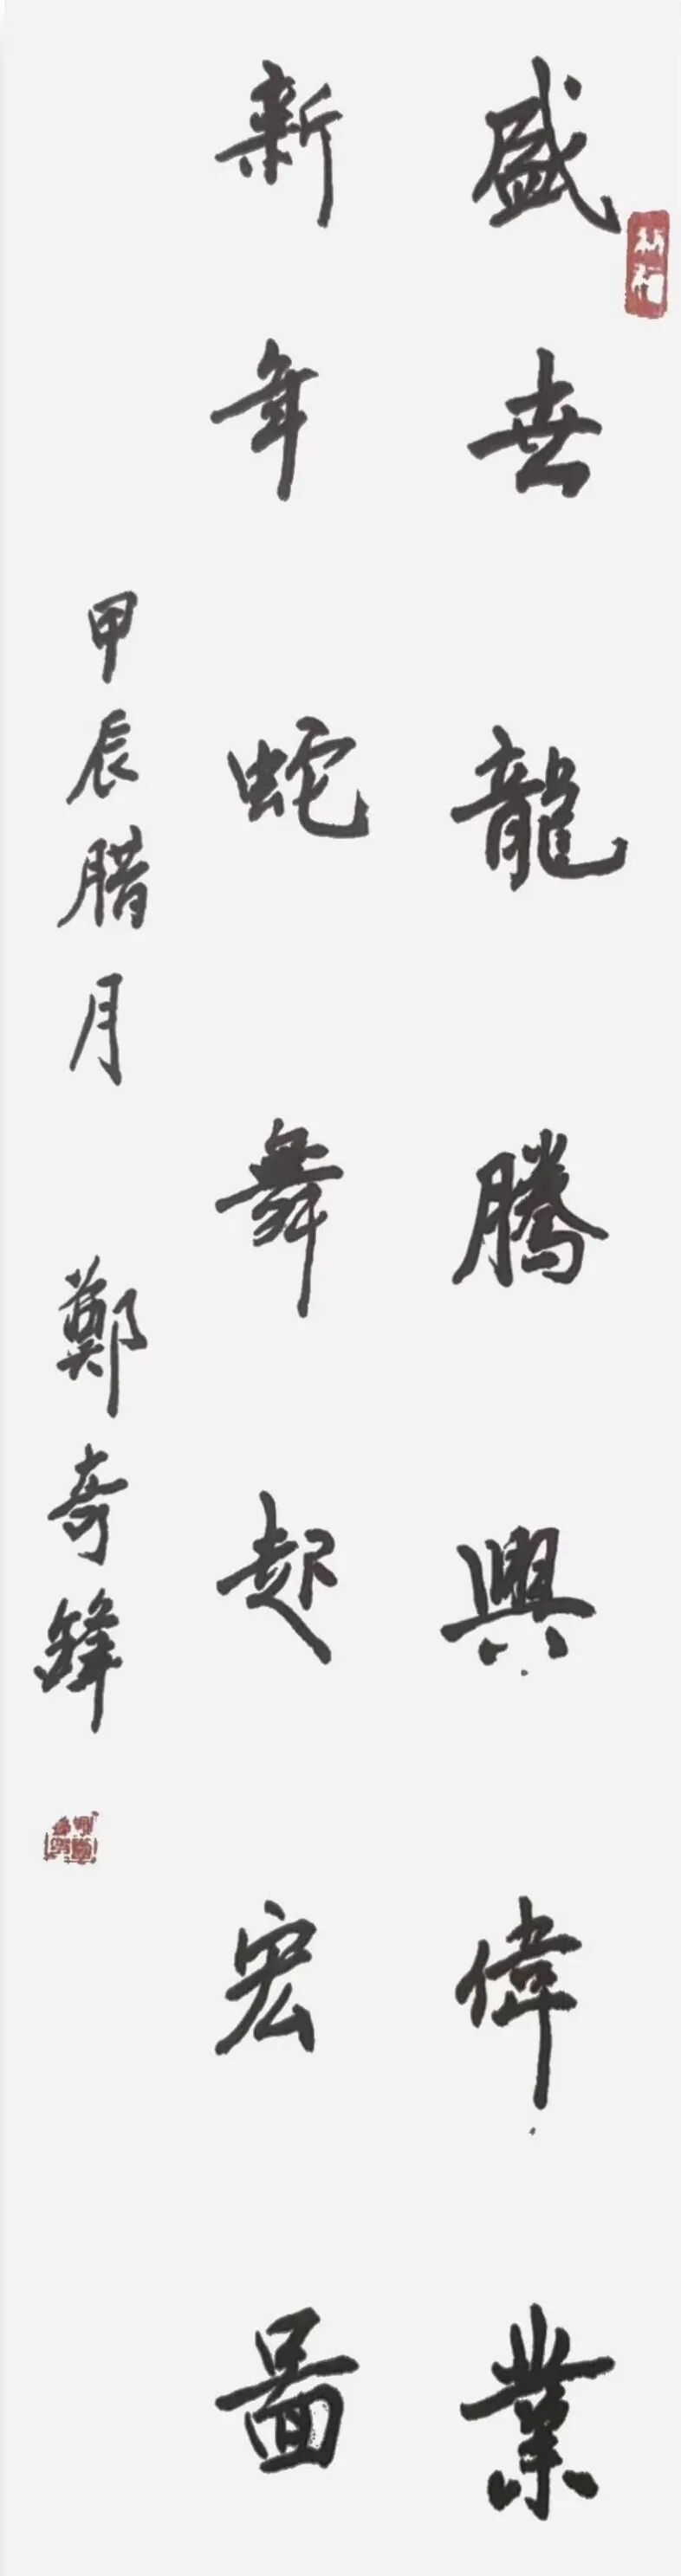 盛世龍騰興偉業
新年蛇舞起宏圖
甲辰腊月 鄭奇鋒